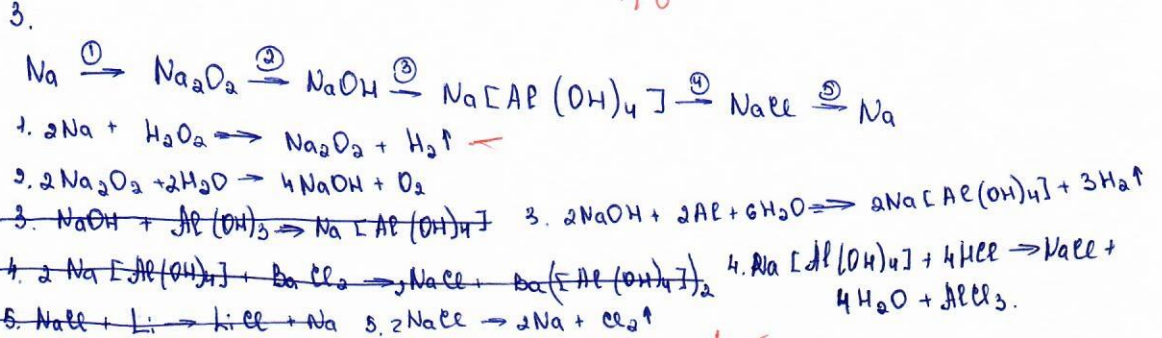 3.
Na ①→ Na₂O₂ ②→ NaOH ③→ Na[Al(OH)₄] ④→ NaCl ⑤→ Na
1. 2Na + H₂O₂ → Na₂O₂ + H₂↑
2. 2Na₂O₂ + 2H₂O → 4NaOH + O₂
3. NaOH + Al(OH)₃ → Na[Al(OH)₄] 3. 2NaOH + 2Al + 6H₂O → 2Na[Al(OH)₄] + 3H₂↑
4. 2Na[Al(OH)₄] + BaCl₂ → 2NaCl + Ba([Al(OH)₄])₂ 4. Na[Al(OH)₄] + 4HCl → NaCl +
4H₂O + AlCl₃.
5. NaCl + Li → LiCl + Na 5. 2NaCl → 2Na + Cl₂↑